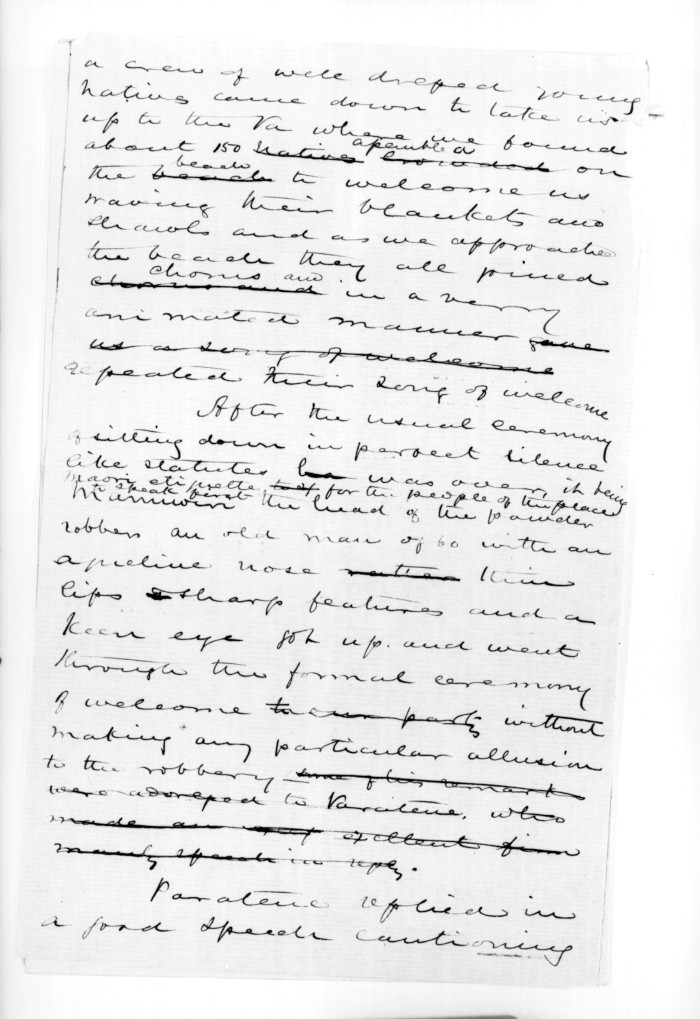 a crew of well dressed young
natives came down to take us
up to the Pa where we found
assembled
about 150 natives crowded on
beach
the beach to welcome us
waving their blankets and
shawls and as we approached
the beach they all joined
chorus and
chorus and in a very
animated manner gave
us a song of welcome
repeated their song of welcome
After the usual ceremony
of sitting down in perfect silence
like statutes was over, it being
Maori etiquette for the people of the place
to speak first
the head of the powder
robbers an old man of 60 with an
aqueline nose rather thin
lips sharp features and a
keen eye got up. and went
through the formal ceremony
of welcome to our party without
making any particular allusion
to the robbery some of his remarks
were adressed to Paratene, who
made an excellent firm
manly speech in reply.
Paratene replied in
a good speech cautioning